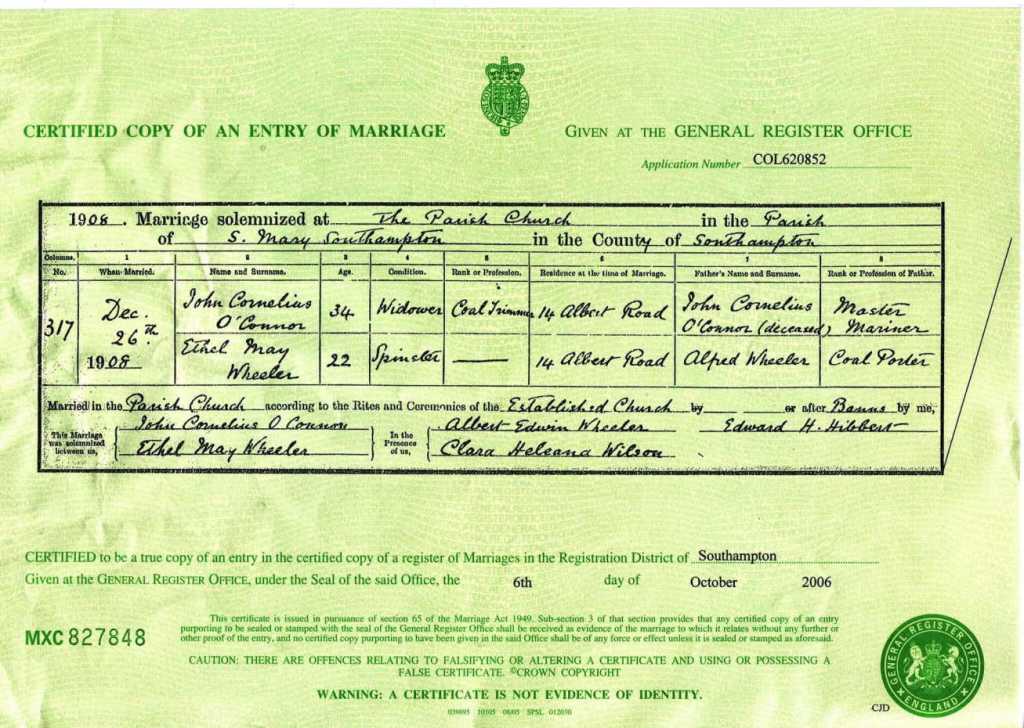 CERTIFIED COPY OF AN ENTRY OF MARRIAGE
GIVEN AT THE GENERAL REGISTER OFFICE
Application Number COL620852
1908. Marriage solemnized at The Parish Church in the Parish
of S. Mary Southampton in the County of Southampton
Columns. 1 2 3 4 5 6 7 8
No. When Married. Name and Surname. Age. Condition. Rank or Profession. Residence at the time of Marriage. Father's Name and Surname. Rank or Profession of Father.
317 Dec. 26th 1908 John Cornelius O'Connor 34 Widower Coal Trimmer 14 Albert Road John Cornelius O'Connor (deceased) Master Mariner
Ethel May Wheeler 22 Spinster — 14 Albert Road Alfred Wheeler Coal Porter
Married in the Parish Church according to the Rites and Ceremonies of the Established Church by or after Banns by me,
This Marriage was solemnized between us, John Cornelius O Connor In the Presence of us, Albert Edwin Wheeler Edward H. Hibbert
Ethel May Wheeler Clara Heleana Wilson
CERTIFIED to be a true copy of an entry in the certified copy of a register of Marriages in the Registration District of Southampton
Given at the GENERAL REGISTER OFFICE, under the Seal of the said Office, the 6th day of October 2006
MXC 827848
This certificate is issued in pursuance of section 65 of the Marriage Act 1949. Sub-section 3 of that section provides that any certified copy of an entry
purporting to be sealed or stamped with the seal of the General Register Office shall be received as evidence of the marriage to which it relates without any further or
other proof of the entry, and no certified copy purporting to have been given in the said Office shall be of any force or effect unless it is sealed or stamped as aforesaid.
CAUTION: THERE ARE OFFENCES RELATING TO FALSIFYING OR ALTERING A CERTIFICATE AND USING OR POSSESSING A
FALSE CERTIFICATE. ©CROWN COPYRIGHT
WARNING: A CERTIFICATE IS NOT EVIDENCE OF IDENTITY.
SPSL 012030
CJD
GENERAL REGISTER OFFICE
ENGLAND